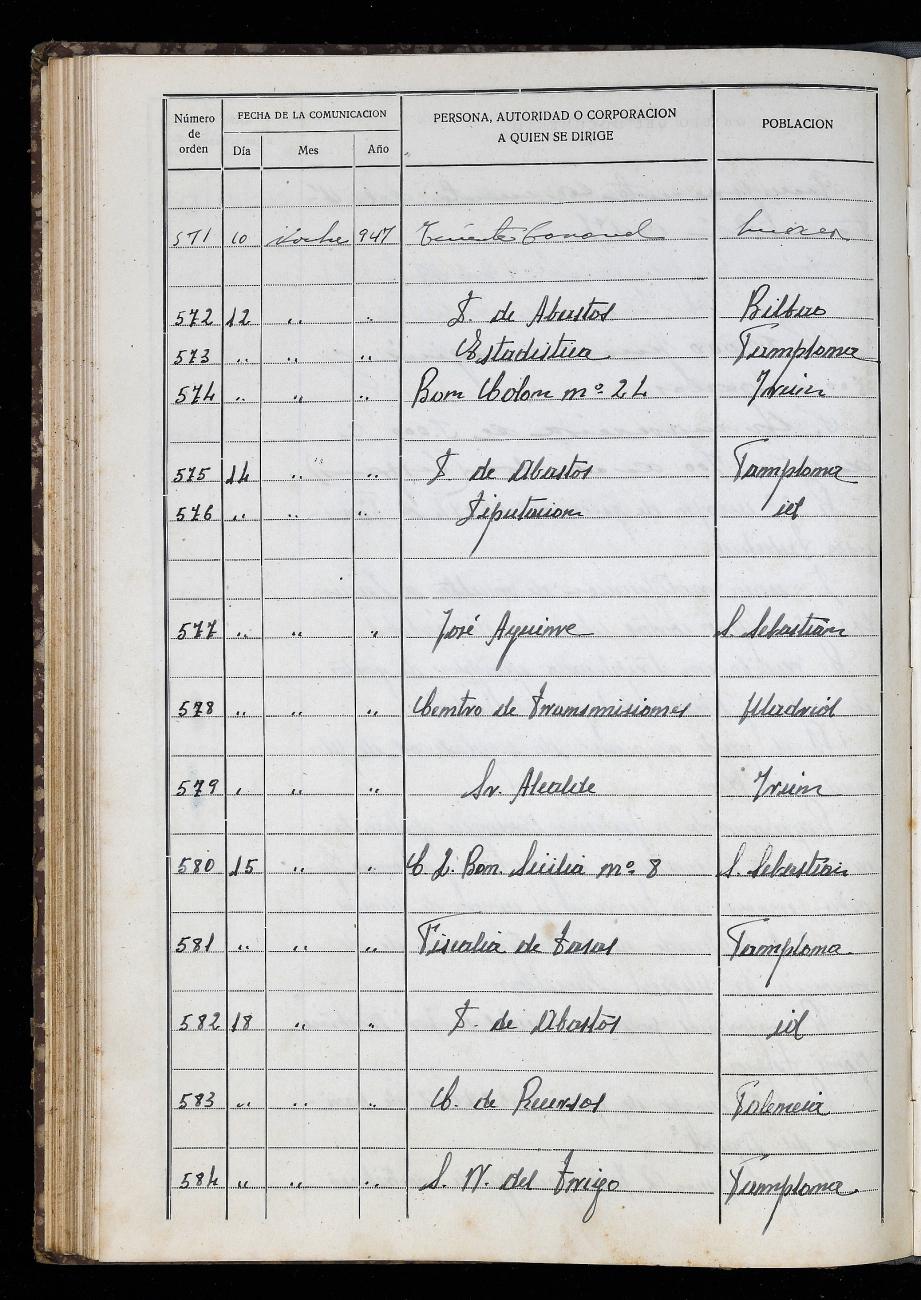 Número de orden
FECHA DE LA COMUNICACION
PERSONA, AUTORIDAD O CORPORACION A QUIEN SE DIRIGE
POBLACION
Día Mes Año
571 10 947 Teniente Coronel
572 12 " " D. de Abastos Bilbao
573 " " " Estadistica Pamplona
574 " " " Bon Colon nº 24 Irun
575 14 " " D. de Abastos Pamplona
576 " " " Diputacion id
577 " " " José Aguirre S. Sebastian
578 " " " Centro de Transmisiones Madrid
579 " " " Sr. Alcalde Irun
580 15 " " C. L. Bon. Sicilia nº 8 S. Sebastian
581 " " " Fiscalia de Tasas Pamplona
582 18 " " D. de Abastos id
583 " " " C. de Recursos Palencia
584 " " " S. N. del Trigo Pamplona